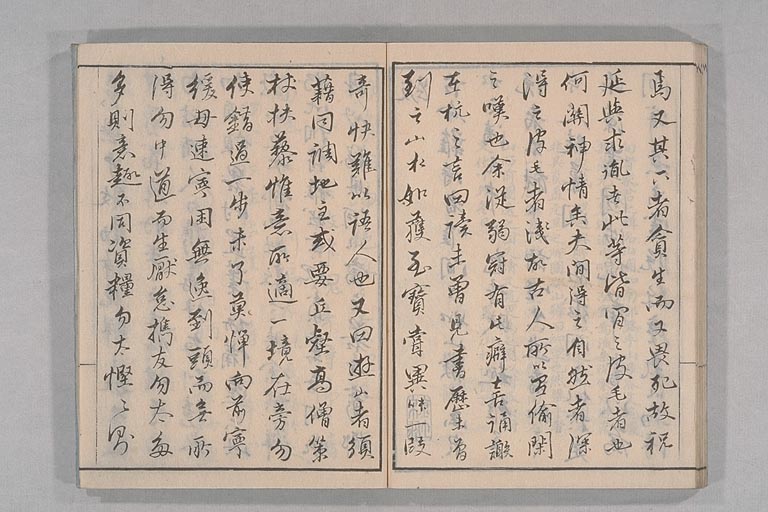 焉又其下者貪生而又畏死故祝
延與求亂者此等皆買之皮毛者也
何關神情矣夫聞得之自然者深
得之皮毛者淺故古人所以買偷閑
之嘆也余從弱冠有此癖喜誦謝
在杭之言曰讀未曾見書歷未曾
到之山水如獲至寶嘗異味一段
奇快難以語人也又曰遊山者須
藉同調地主或要丘壑高僧策
杖扶藜惟意所適一境在旁勿
使錯過一步未了莫憚向前寧
緩毋速寧困無逸到頭而無所
得勿中道而生厭怠攜友勿太多
多則意趣不同資糧勿太慳慳則